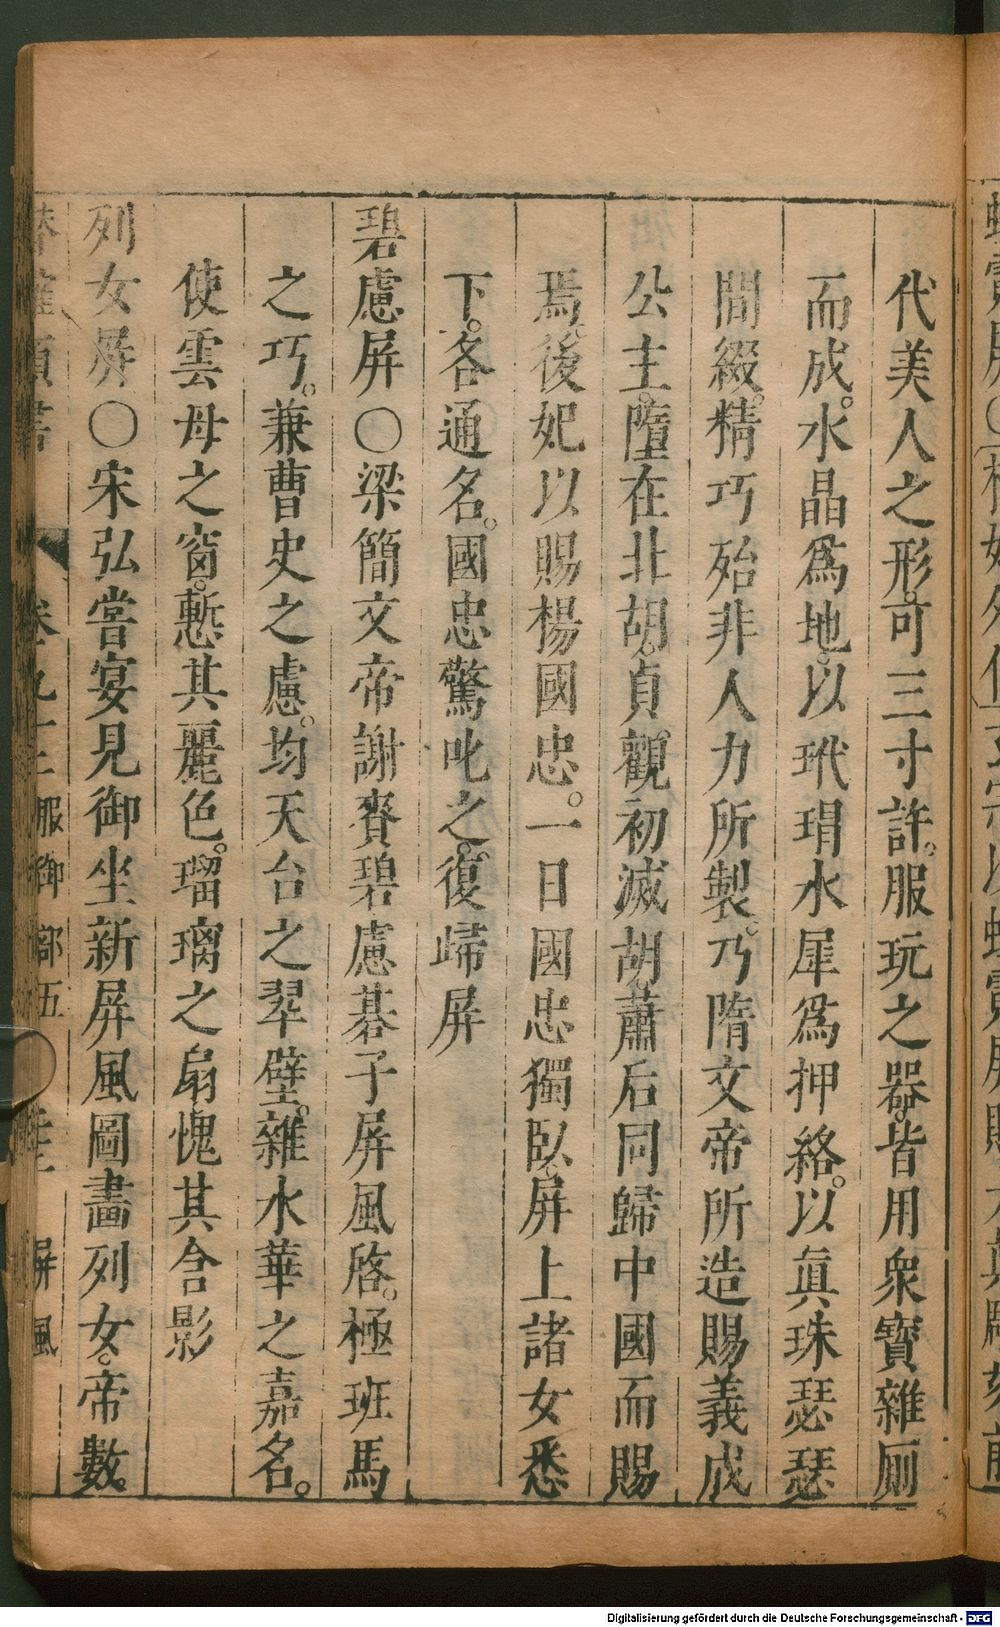 代美人之形可三寸許。服玩之器。皆用衆寶雜厠
而成。水晶爲地。以玳瑁水犀爲押絡。以眞珠瑟瑟
間綴。精巧殆非人力所製。乃隋文帝所造賜義成
公主。隨在北胡。貞觀初滅胡。蕭后同歸中國而賜
焉。後妃以賜楊國忠。一日國忠獨臥。屏上諸女悉
下。各通名。國忠驚叱之。復歸屏
碧慮屏〇梁簡文帝謝賚碧慮棊子屏風啓。極班馬
之巧。兼曹史之慮。均天台之翠壁。雜水華之嘉名。
使雲母之窗。慙其麗色。瑠璃之扇愧其含影
列女屏〇宋弘嘗宴見御坐新屏風圖畫列女。帝數。
卷九十三 服御部五 屏風
Digitalisierung gefördert durch die Deutsche Forschungsgemeinschaft - DFG